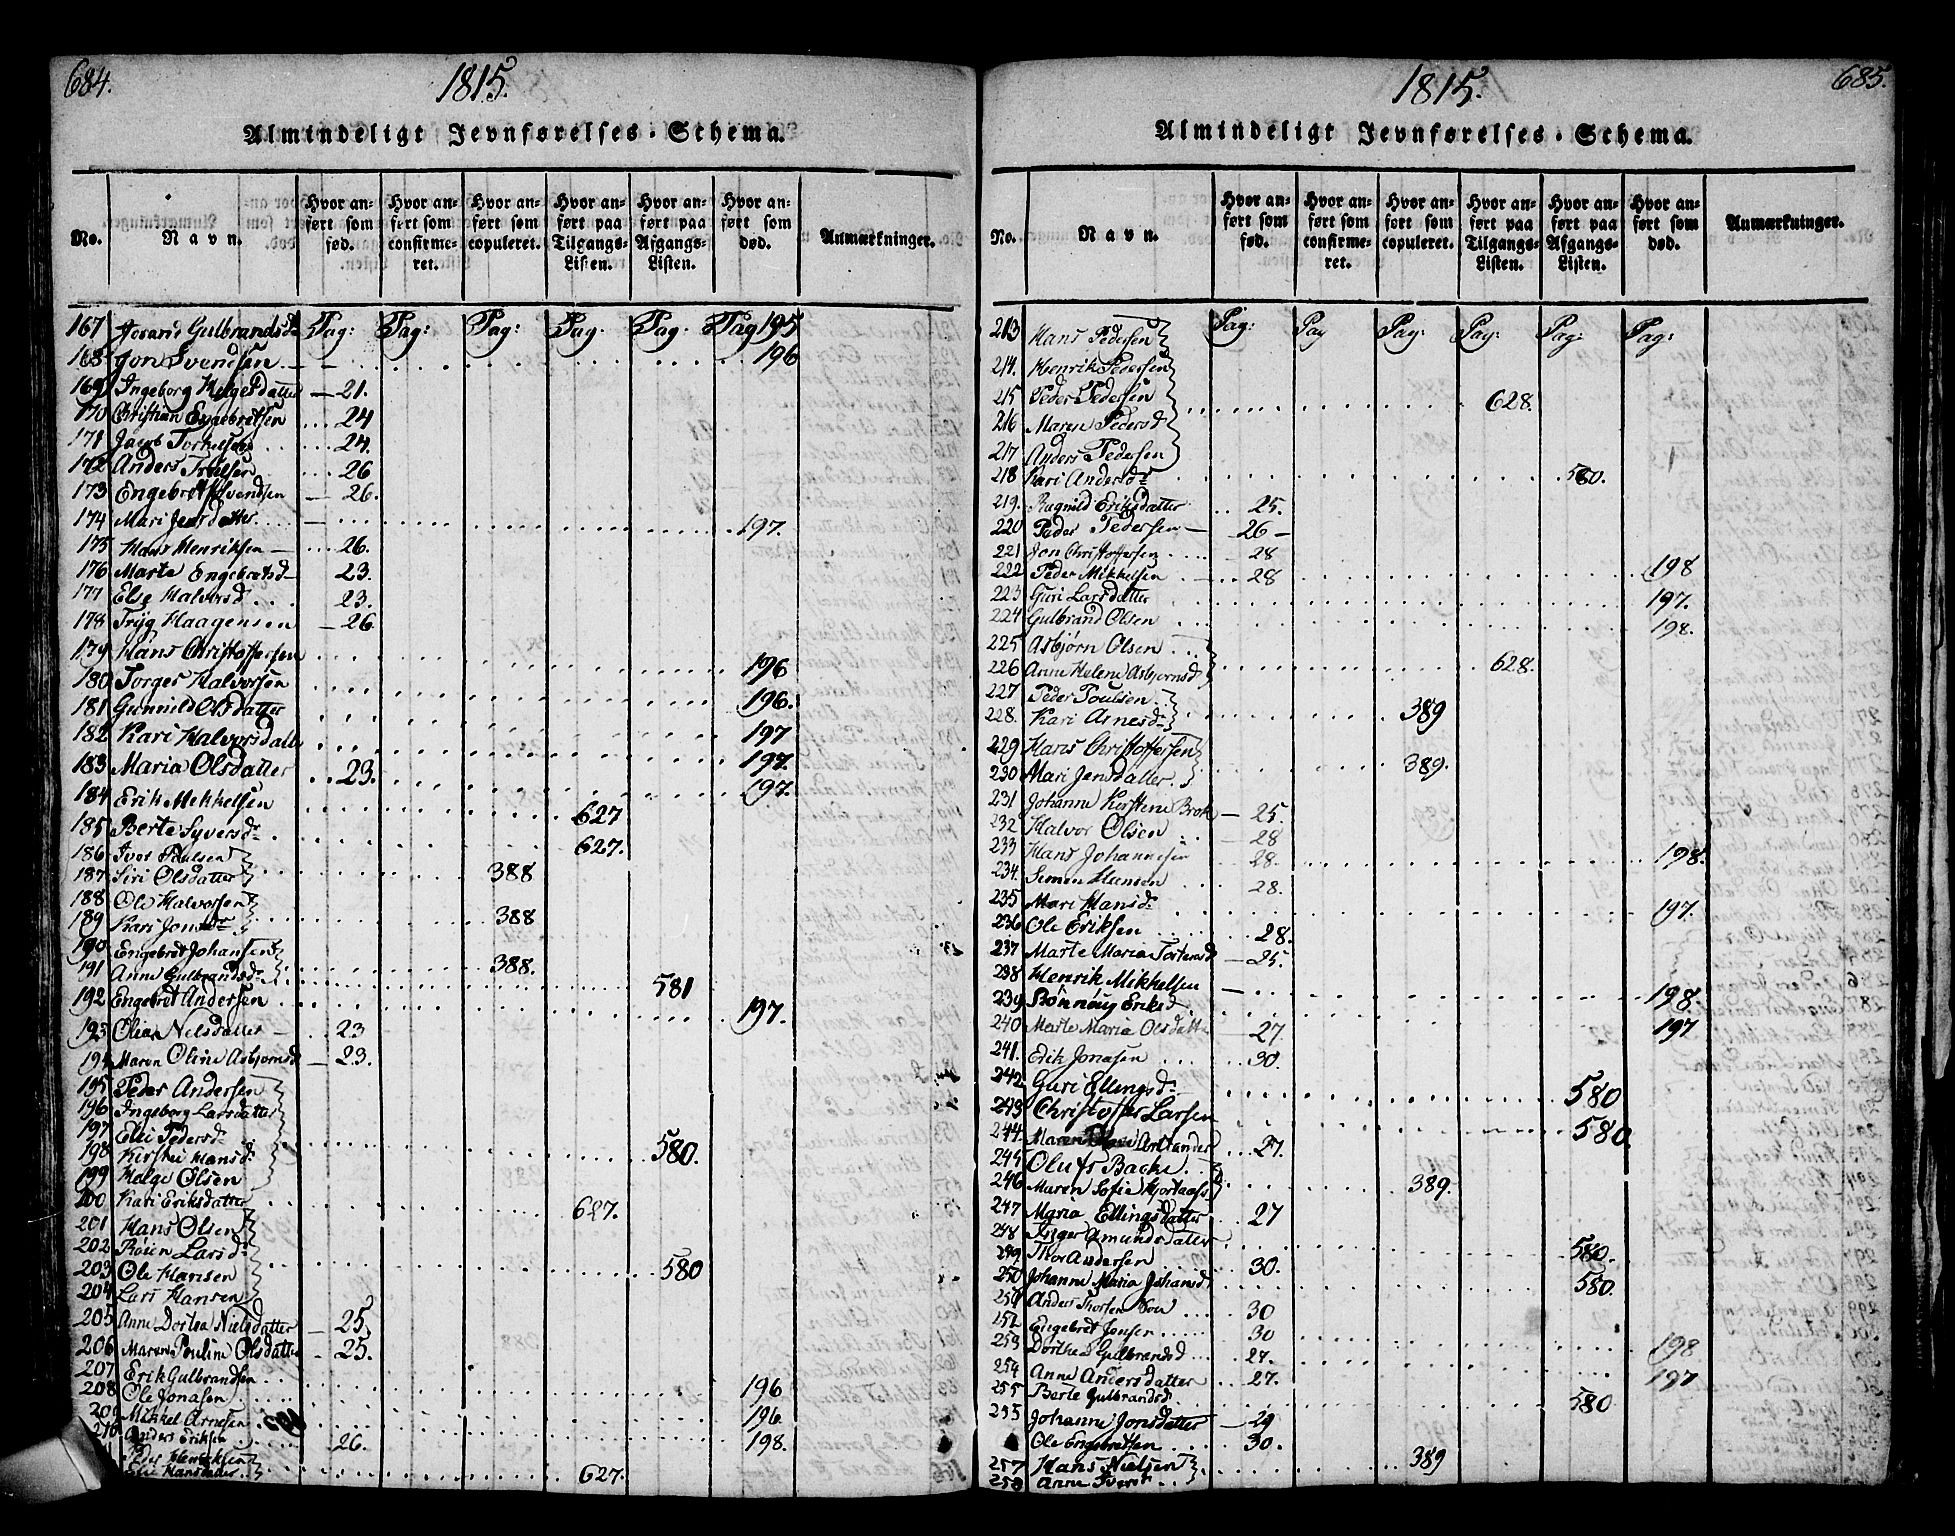 684.
1815.
Almindeligt Jevnførelses-Schema.
No. Navn. Hvor anført som fød. Hvor anført som confirmeret. Hvor anført som copuleret. Hvor anført paa Tilgangs-Listen. Hvor anført paa Afgangs-Listen. Hvor anført som død. Anmærkninger.
167 Gulbrandsd Pag: Pag: Pag: Pag. Pag. Pag 195
168 Jon Svendsen 196
169 Ingeborg Helgesdatter 21.
170 Christian Engebretsen 24
171 Jacob Torkelsen 24.
172 Anders Troelsen 26
173 Engebret Svendsen 26.
174 Mari Jensdatter 197.
175 Hans Henriksen 26.
176 Marte Engebretsd 23.
177 Else Halvorsd 23.
178 Tryg Haagensen 26
179 Hans Christoffersen 196
180 Torger Halvorsen 196.
181 Gunnild Olsdatter 197
182 Kari Halvorsdatter 197.
183 Maria Olsdatter 23. 197.
184 Erik Mekkelsen 627
185 Berte Syversd 627.
186 Iver Poulsen
187 Siri Olsdatter 388
188 Ole Halvorsen
189 Kari Jonsd 388
190 Engebret Johansen
191 Anne Gulbrandsd 388.
192 Engebret Andersen 581
197.
193 Olia Nelsdatter 23
194 Maren Oline Asbjornsd 23.
195 Peder Andersen
196 Ingeborg Larsdatter
197 Eli Pedersd
198 Kirsti Hansd 580.
199 Helge Olsen
200 Kari Eriksdatter 627.
201 Hans Olsen
202 Larsd
203 Ole Hansen 580
204 Lars Hansen
205 Anne Dortea Nielsdatter 25.
206 Maren Pouline Olsdatter 25.
207 Erik Gulbrandsen 196
208 Ole Jonasen 196
209 Mikkel Arnesen 198.
210 Anders Eriksen 26.
Peder Henriksen
Hansdatter 627.
685.
1815.
Almindeligt Jevnførelses-Schema.
No. Navn. Hvor anført som fød. Hvor anført som confirmeret. Hvor anført som copuleret. Hvor anført paa Tilgangs-Listen. Hvor anført paa Afgangs-Listen. Hvor anført som død. Anmærkninger.
213 Hans Pedersen Pag: Pag Pag: Pag: Pag: Pag:
214. Henrik Pedersen
215 Peder Pedersen 628.
216 Maren Pedersd
217 Anders Pedersen
218 Kari Andersd 580.
219. Ragnild Eriksdatter 25.
220 Peder Pedersen 26
221 Jon Christoffersen 28
222 Peder Mikkelsen 28 198
223 Guri Larsdatter 197.
224 Gulbrand Olsen 198.
225 Asbjørn Olsen
226 Anne Helene Asbjornsd 628.
227 Peder Poulsen
228. Kari Arnesd 389
229 Hans Christoffersen
230 Mari Jensdatter 389.
231 Johanne Kirstene Brok 25.
232 Halvor Olsen 28
233 Hans Johannesen 28. 198.
234. Simen Hansen 28.
235 Mari Hansd 197.
236 Ole Eriksen 28.
237 Marte Maria Torstensd 25.
238 Henrik Mikkelsen 198.
239 Rønnoug Eriksd 197
240 Marte Maria Olsdatter 27.
241. Erik Jonasen 30.
242 Guri Ellingsd 580
243 Christoffer Larsen 580
244. Maren 27.
245 Oluf Backe
246 Maren Sofie 389.
247 Maria Ellingsdatter 27
248 Amundsdatter 580.
249 Thor Andersen 30.
250 Johanne Maria Johansd 580.
251 Anders Thorsen 30
252 Engebret Jensen 30
253 Dorthea Gulbrandsd 27. 198
254 Anne Andersdatter 27. 197
255 Berte Gulbrandsd 580
255 Johanne Jonsdatter 29
Ole Engebretsen 30.
257 Hans Nielsen 389
258 Anne